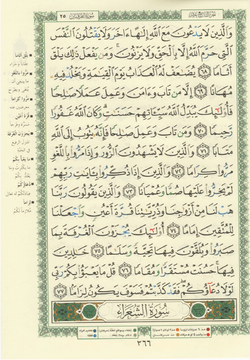 وَالَّذِينَ لَا يَدْعُونَ مَعَ اللَّهِ إِلَٰهًا آخَرَ وَلَا يَقْتُلُونَ النَّفْسَ
الَّتِي حَرَّمَ اللَّهُ إِلَّا بِالْحَقِّ وَلَا يَزْنُونَ ۚ وَمَن يَفْعَلْ ذَٰلِكَ يَلْقَ
أَثَامًا ﴿٦٨﴾ يُضَاعَفْ لَهُ الْعَذَابُ يَوْمَ الْقِيَامَةِ وَيَخْلُدْ فِيهِ
مُهَانًا ﴿٦٩﴾ إِلَّا مَن تَابَ وَآمَنَ وَعَمِلَ عَمَلًا صَالِحًا
فَأُولَٰئِكَ يُبَدِّلُ اللَّهُ سَيِّئَاتِهِمْ حَسَنَاتٍ ۗ وَكَانَ اللَّهُ غَفُورًا
رَّحِيمًا ﴿٧٠﴾ وَمَن تَابَ وَعَمِلَ صَالِحًا فَإِنَّهُ يَتُوبُ إِلَى اللَّهِ
مَتَابًا ﴿٧١﴾ وَالَّذِينَ لَا يَشْهَدُونَ الزُّورَ وَإِذَا مَرُّوا بِاللَّغْوِ
مَرُّوا كِرَامًا ﴿٧٢﴾ وَالَّذِينَ إِذَا ذُكِّرُوا بِآيَاتِ رَبِّهِمْ
لَمْ يَخِرُّوا عَلَيْهَا صُمًّا وَعُمْيَانًا ﴿٧٣﴾ وَالَّذِينَ يَقُولُونَ رَبَّنَا
هَبْ لَنَا مِنْ أَزْوَاجِنَا وَذُرِّيَّاتِنَا قُرَّةَ أَعْيُنٍ وَاجْعَلْنَا
لِلْمُتَّقِينَ إِمَامًا ﴿٧٤﴾ أُولَٰئِكَ يُجْزَوْنَ الْغُرْفَةَ بِمَا
صَبَرُوا وَيُلَقَّوْنَ فِيهَا تَحِيَّةً وَسَلَامًا ﴿٧٥﴾ خَالِدِينَ
فِيهَا ۚ حَسُنَتْ مُسْتَقَرًّا وَمُقَامًا ﴿٧٦﴾ قُلْ مَا يَعْبَأُ بِكُمْ رَبِّي
لَوْلَا دُعَاؤُكُمْ ۖ فَقَدْ كَذَّبْتُمْ فَسَوْفَ يَكُونُ لِزَامًا ﴿٧٧﴾
سُورَةُ الشُّعَرَاءِ
٣٦٦